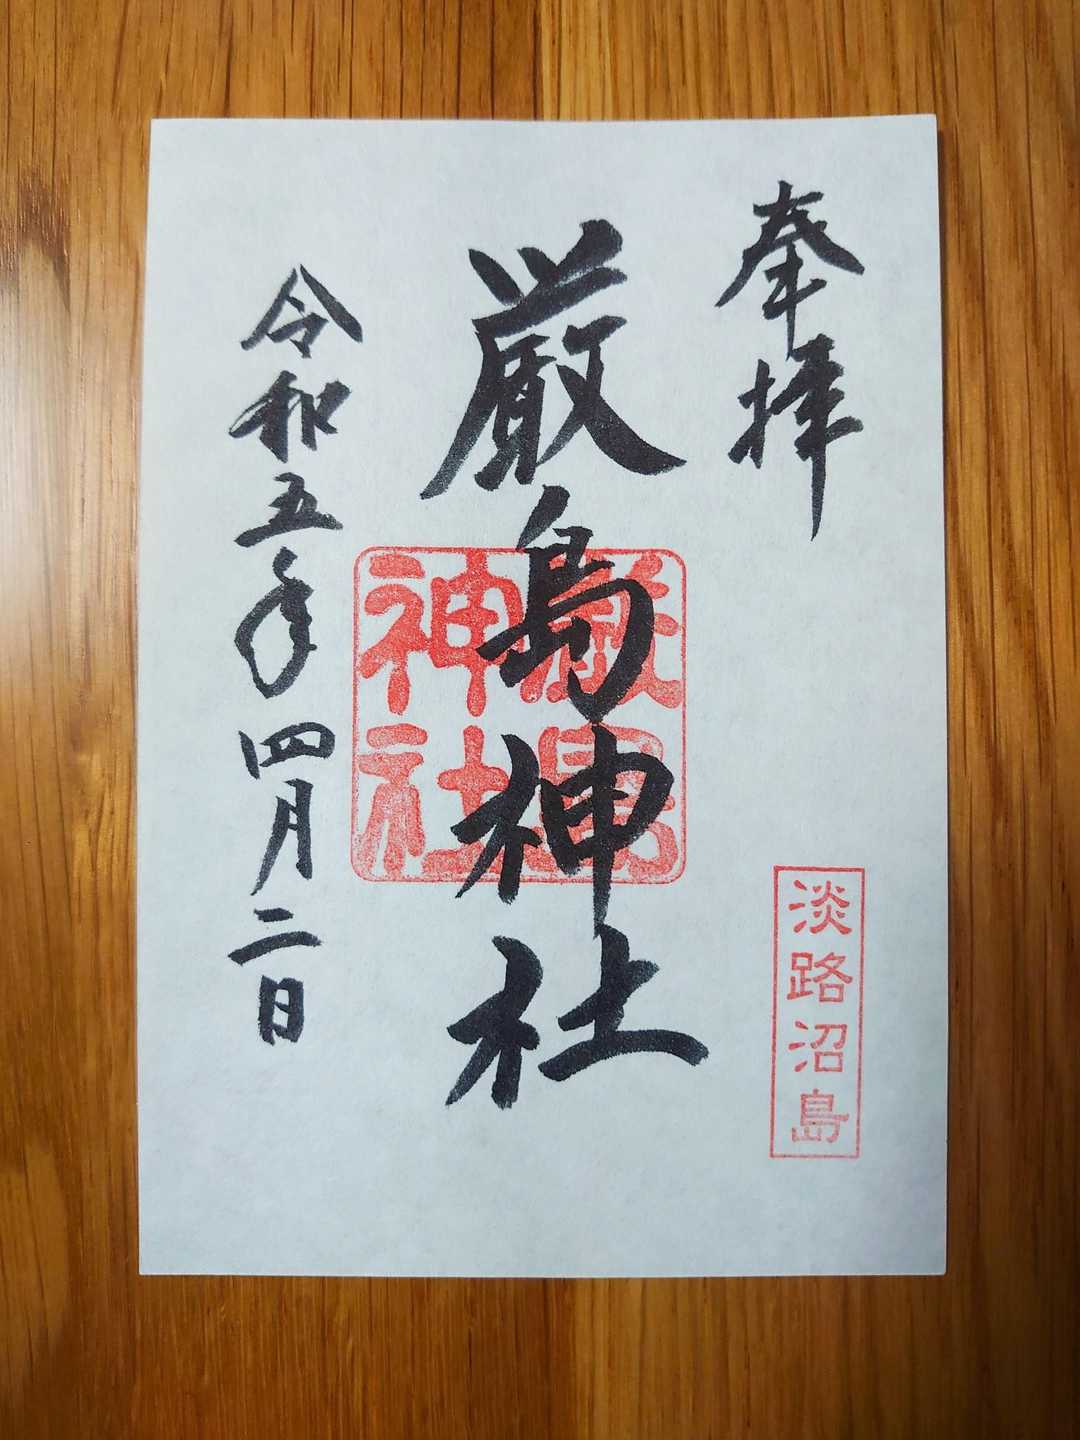 奉拝
淡路沼島
厳島神社
厳島
神社
令和五年四月二日